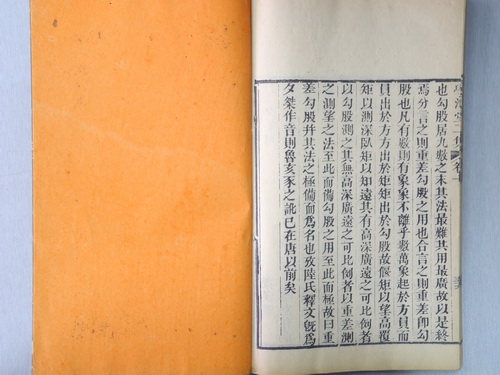 堂二集
卷
也勾股居九數之末其法最難其用最廣故以是終
焉分言之則重差勾股之用也合言之則重差卽勾
股也凡有數則有象象不離乎數萬象起於方員而
員出於方方出於矩矩出於勾股故偃矩以望高覆
矩以測深臥矩以知遠其有高深廣遠之可比例者
以勾股測之其無高深廣遠之可比例者以重差測
之測望之法至此而備勾股之用至此而極故曰重
差勾股幷其法之極備而爲名也攷陸氏釋文旣爲
夕桀作音則魯亥豕之訛已在唐以前矣